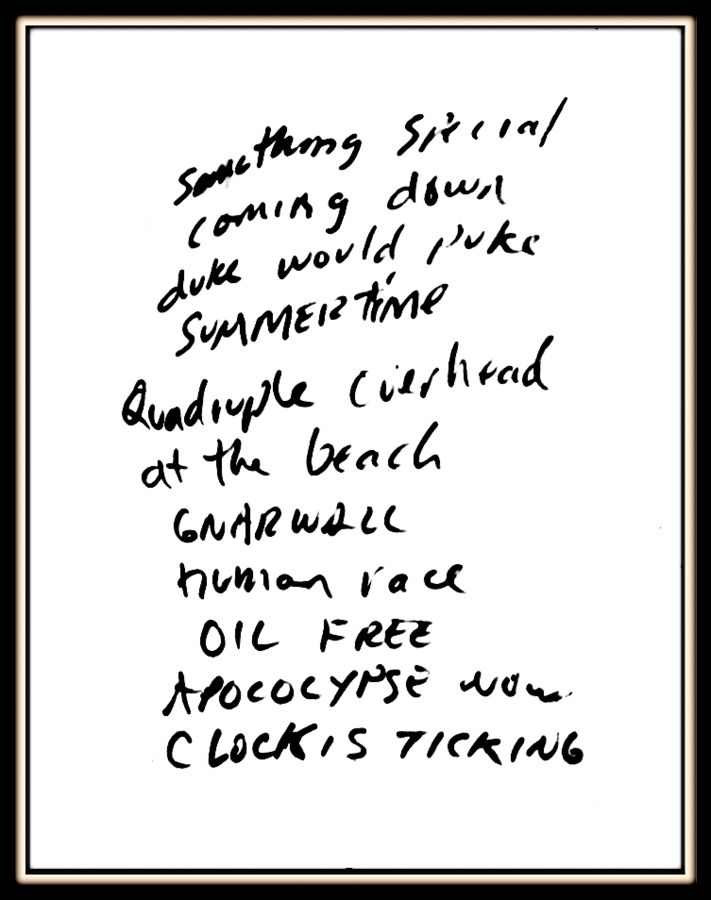 something special
coming down
duke would puke
SUMMERtiMe
Quadruple overhead
at the beach
GNARWALL
human race
OIL FREE
APOCOCYPSE NOW
CLOCK IS TICKING